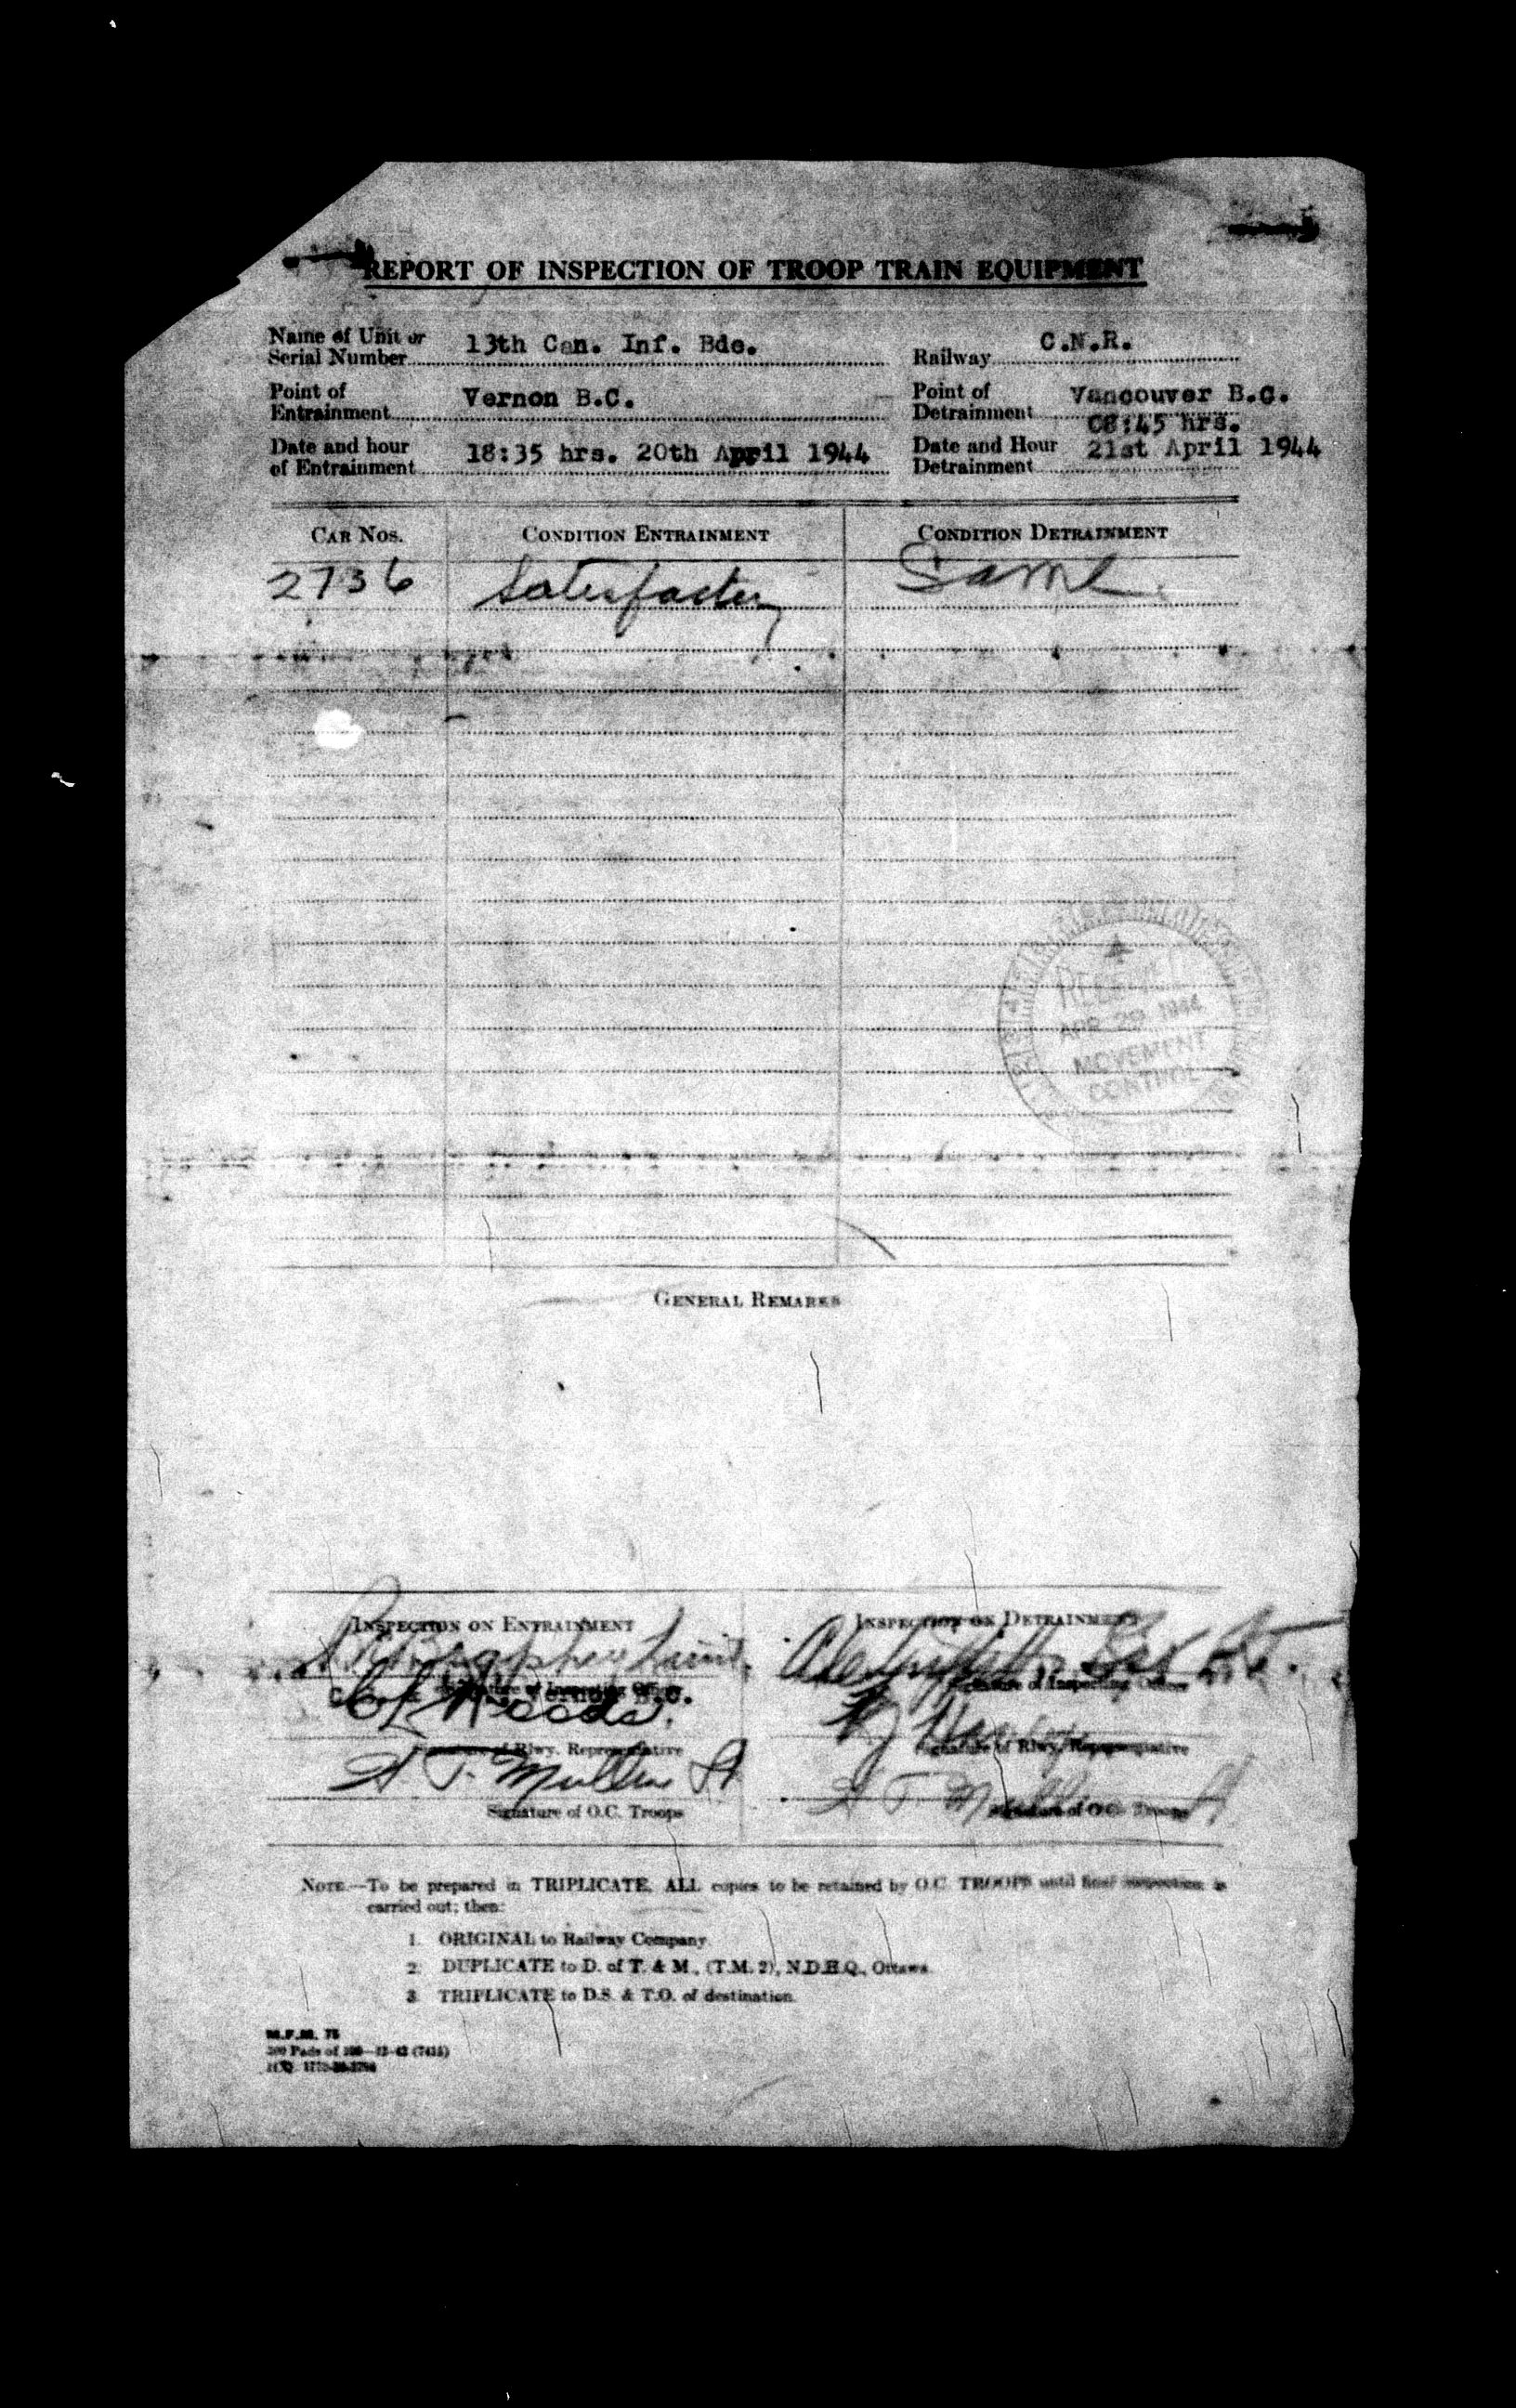 REPORT OF INSPECTION OF TROOP TRAIN EQUIPMENT
Name of Unit or
Serial Number 13th Can. Inf. Bde.
Railway C.N.R.
Point of
Entrainment Vernon B.C.
Point of
Detrainment Vancouver B.C.
Date and hour
of Entrainment 18:35 hrs. 20th April 1944
08:45 hrs.
Date and Hour
Detrainment 21st April 1944
CAR NOS. CONDITION ENTRAINMENT CONDITION DETRAINMENT
2736 Satisfactory Same
RECEIVED
APR 29 1944
MOVEMENT
CONTROL
GENERAL REMARKS
INSPECTION ON ENTRAINMENT
Signature of Inspecting Officer
Vernon B.C.
Woods.
Signature of Rlwy. Representative
A T. Mullin Lt
Signature of O.C. Troops
INSPECTION ON DETRAINMENT
Signature of Inspecting Officer
Signature of Rlwy. Representative
A T Mullin Lt
Signature of O.C. Troops
NOTE.—To be prepared in TRIPLICATE, ALL copies to be retained by O.C. TROOPS until final inspection is
carried out; then:
1. ORIGINAL to Railway Company.
2. DUPLICATE to D. of T. & M., (T.M. 2), N.D.H.Q., Ottawa.
3. TRIPLICATE to D.S. & T.O. of destination.
M.F.M. 75